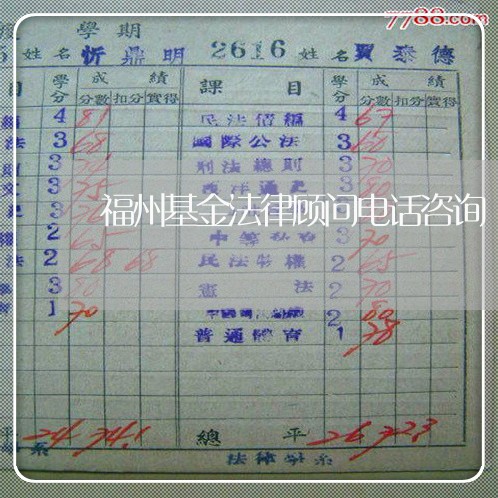 7788.com
學期
姓名 忻鼎明 2616 姓名 賈泰德
目 學分 成績 課目 學分 成績
分數 扣分 實得 分數 扣分 實得
4 81 民法債編 4 67
法 3 68 國際公法 3 60
3 刑法總則 3 70
3 75 西洋通史 3 80
福州基金法律顾问电话咨询
2 65 3 70
法 2 68 68 民法物權 2 65
3 80 憲法 2 70
1 70 2 80
普通體育 1 78
平 24 74.1 總平 26 72.3
系 法律學系